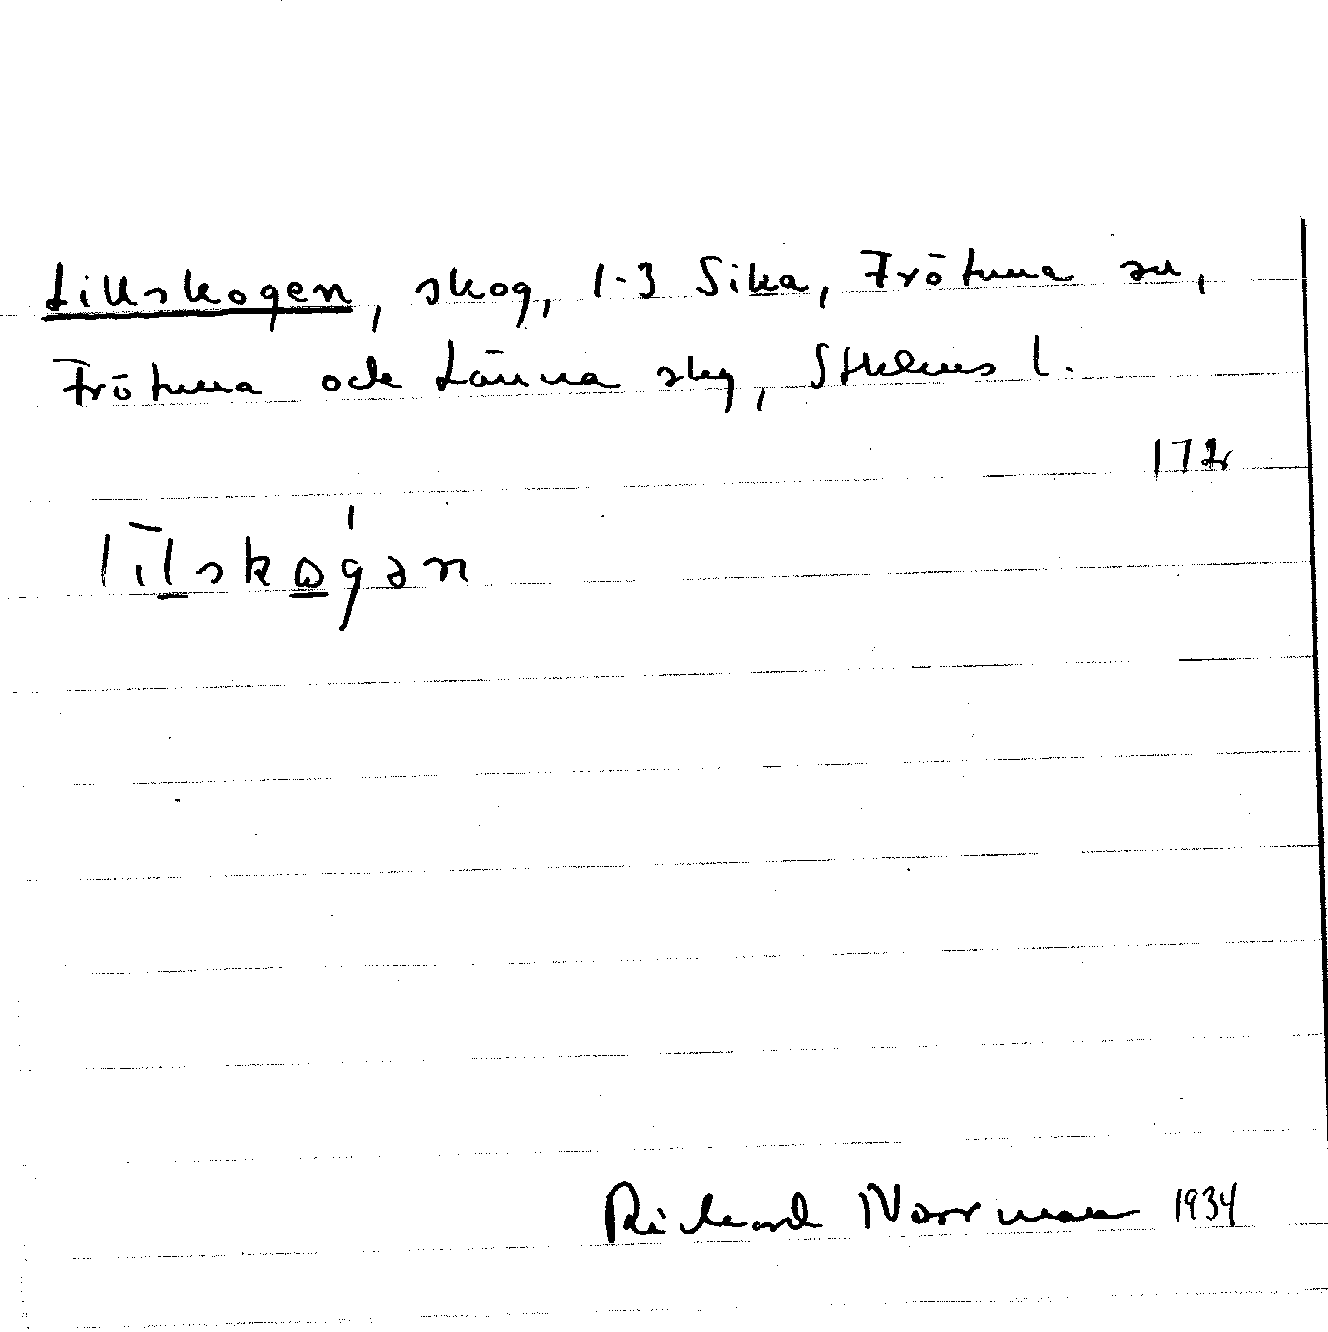 Lillskogen, skog, 1-3 Sika, Frötuna sn,
Frötuna och Länna skg, Sthlms l.
172
Richard Norrman 1934